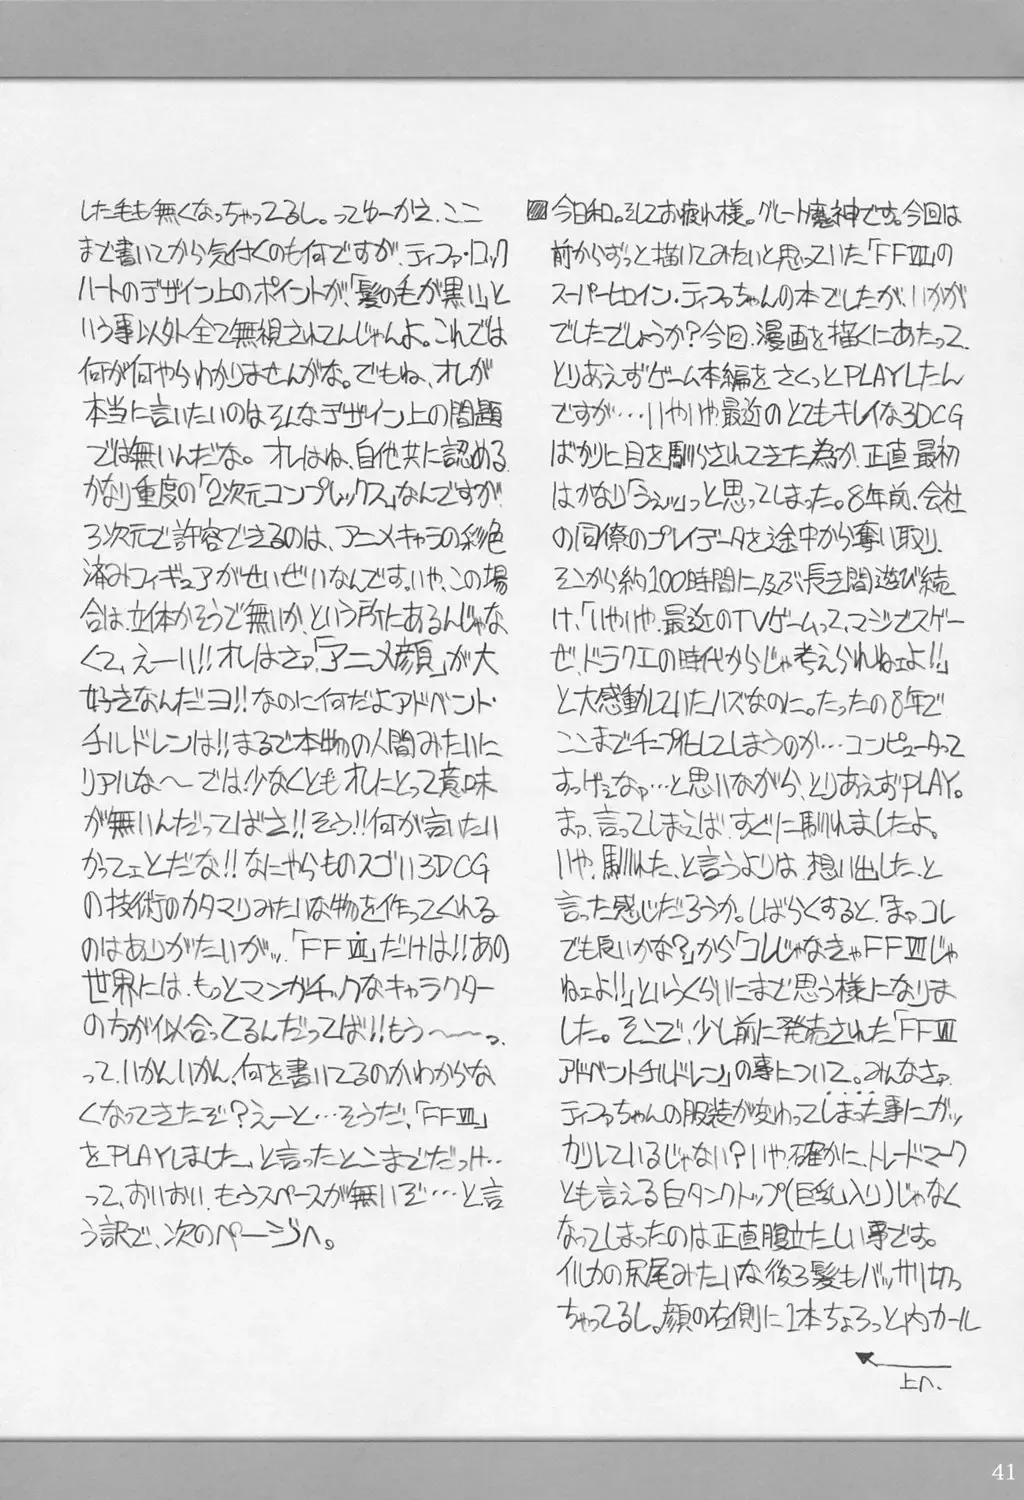 ▨今日和。そしてお疲れ様。グレート魔神です。今回は
前からずっと描いてみたいと思っていた「FFⅦ」の
スーパーヒロイン・ティファちゃんの本でしたが、いかが
でしたでしょうか?今回、漫画を描くにあたって、
とりあえずゲーム本編をさくっとPLAYしたん
ですが…いやいや、最近のとてもキレイな3DCG
ばかりに目を馴らされてきた為か、正直、最初
はかなり「うえッ」っと思ってしまった。8年前、会社
の同僚のプレイデータを途中から奪い取り、
そこから約100時間に及ぶ長き間遊び続
け、「いやいや、最近のTVゲームって、マジでスゲー
ぜ、ドラクエの時代からじゃ考えられねェよ!!」
と大感動していたハズなのに。たったの8年で
ここまでチープ化してしまうのか…コンピュータって
すっげェなァ…と思いながら、とりあえずPLAY。
まァ、言ってしまえば、すぐに馴れましたよ。
いや、馴れた、と言うよりは、想い出した、と
言った感じだろうか。しばらくすると、「まァコレ
でも良いかな?」から「コレじゃなきゃFFⅦじゃ
ねェよ!!」というくらいにまで思う様になりま
した。そこで、少し前に発売された「FFⅦ
アドベントチルドレン」の事について。みんなさァ、
ティファちゃんの服装が変わってしまった事にガッ
カリしているじゃない?いや、確かに、トレードマーク
とも言える白タンクトップ(巨乳入り)じゃなく
なってしまったのは正直腹立たしい事です。
イルカの尻尾みたいな後ろ髪もバッサリ切っ
ちゃってるし。顔の右側に1本ちょろっと内カール
上へ。
した毛も無くなっちゃってるし。ってゆーかえ、ここ
まで書いてから気付くのも何ですが、ティファ・ロック
ハートのデザイン上のポイントが、「髪の毛が黒い」と
いう事以外全て無視されてんじゃんよ。これでは
何が何やらわかりませんがな。でもね、オレが
本当に言いたいのはそんなデザイン上の問題
では無いんだな。オレはね、自他共に認める、
かなり重度の「2次元コンプレックス」なんですが、
3次元で許容できるのは、アニメキャラの彩色
済みフィギュアがせいぜいなんです。いや、この場
合は、立体かそうで無いか、という所にあるんじゃな
くて、えーい!!オレはさァ、「アニメ顔」が大
好きなんだヨ!!なのに何だよアドベント・
チルドレンは!!まるで本物の人間みたいに
リアルな〜では少なくともオレにとって意味
が無いんだってばさ!!そう!!何が言いたい
かってェとだな!!なにやらものスゴい3DCG
の技術のカタマリみたいな物を作ってくれる
のはありがたいがッ、「FFⅦ」だけは!!あの
世界には、もっとマンガチックなキャラクター
の方が似合ってるんだってば!!もう〜〜っ。
って、いかんいかん、何を書いてるのかわからな
くなってきたぞ?えーと…そうだ、「FFⅦ」
をPLAYしました、と言ったとこまでだっけ…
って、おいおい、もうスペースが無いぞ…と言
う訳で、次のページへ。
41